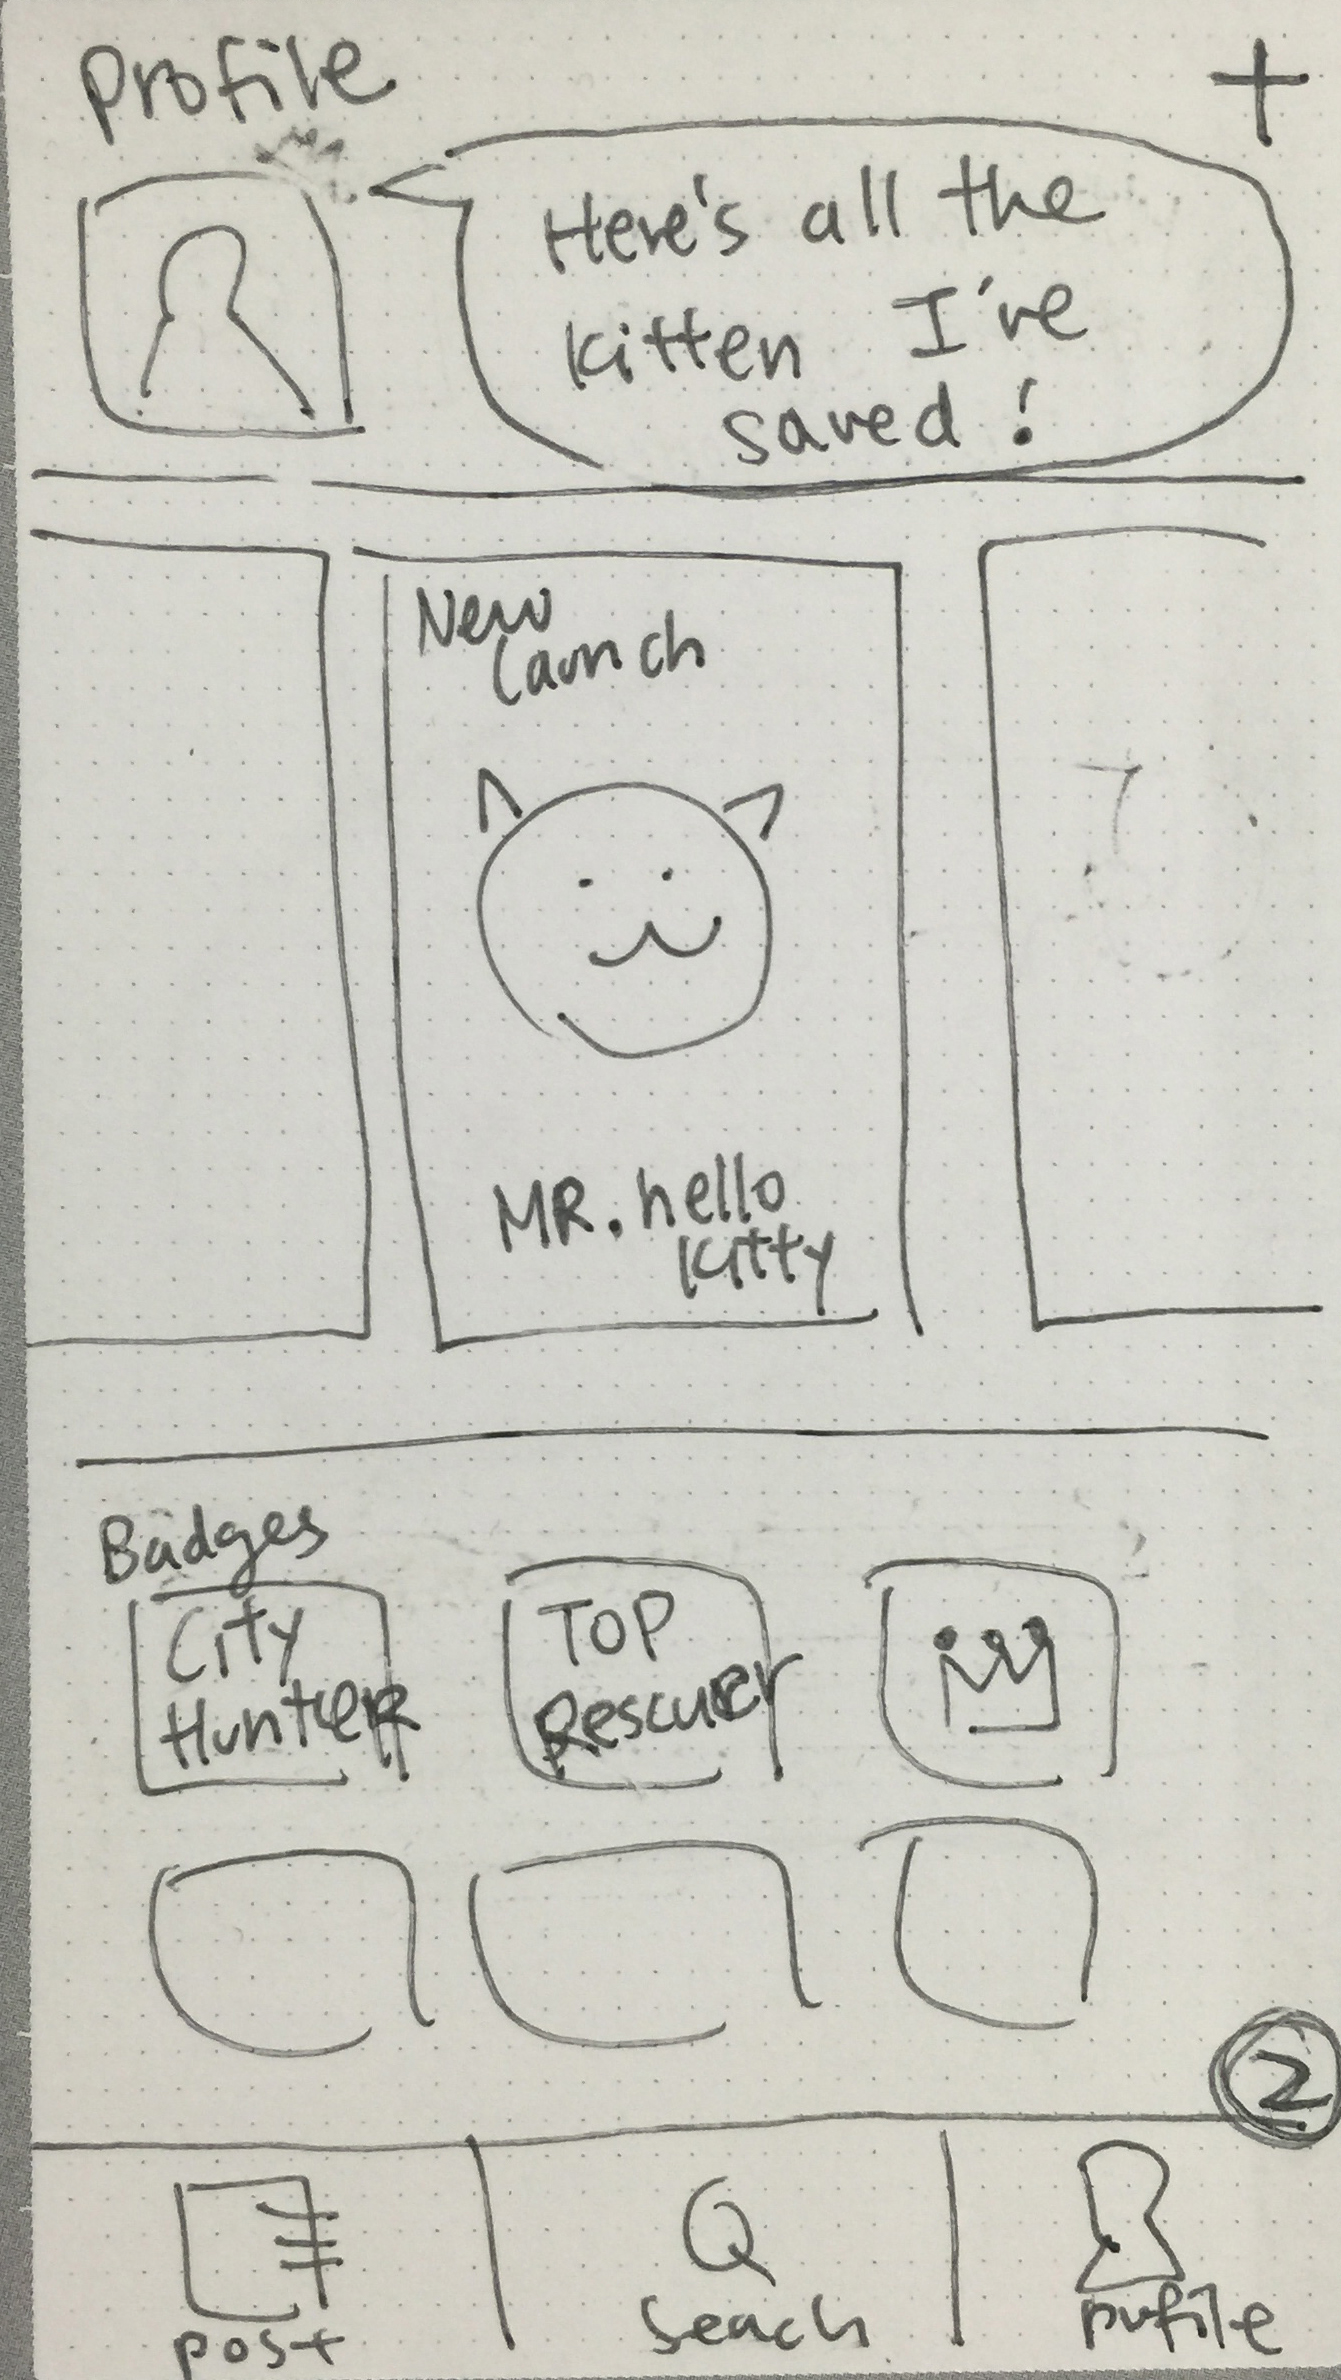 Profile
+
Here's all the
kitten I've
saved!
New
Launch
MR. hello
kitty
Badges
City
Hunter
TOP
Rescuer
2
post
Seach
profile